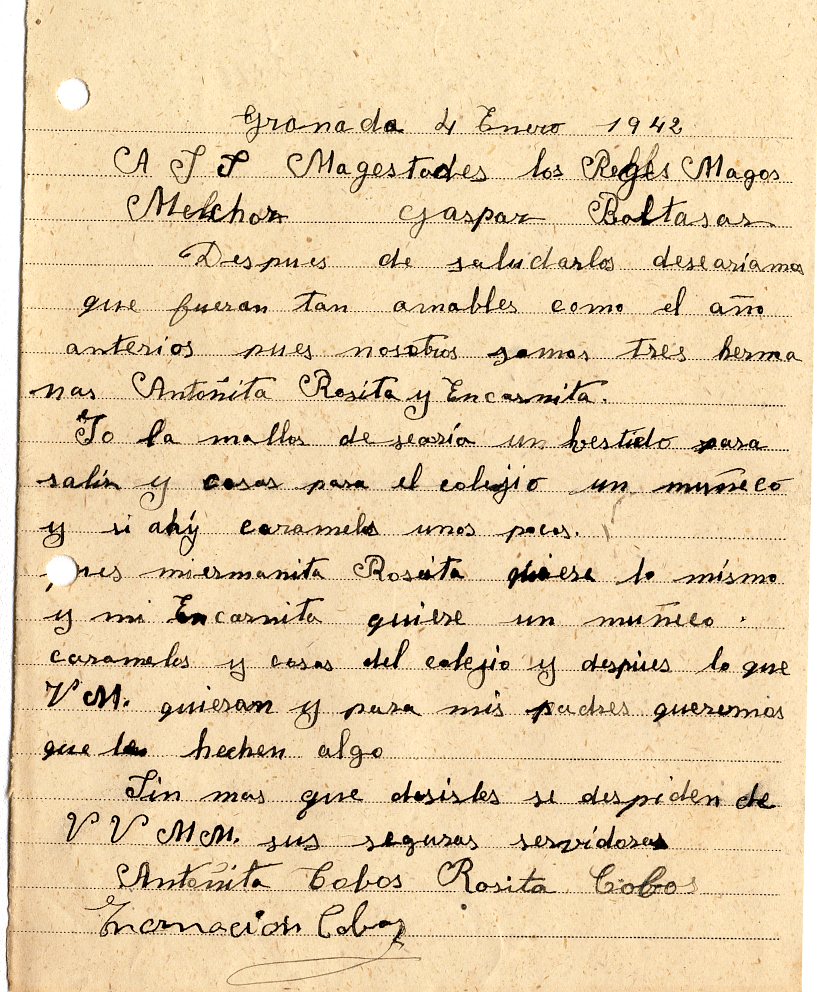 Granada 4 Enero 1942
A S S Magestades los Reyes Magos
Melchor Gaspar Baltasar
Despues de saludarlos desearíamos
que fueran tan amables como el año
anterios pues nosotros somos tres herma
nas Antoñita Rosita y Encarnita.
Yo la mallor desearía un bestido para
salir y cosas para el colegio un muñeco
y si ahý caramelos unos pocos.
pues miermanita Roseita quiere lo mismo
y mi Encarnita quiere un muñeco.
caramelos y cosas del colejio y despues lo que
V M. quieran y para mis padres queremos
que les hechen algo
Sin mas que desisles se despiden de
V V M M. sus seguras servidoras
Antoñita Cobos Rosita Cobos
Encarnacion Cobos